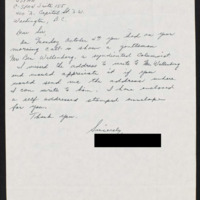 Washington, D.C.
Dear Sir,
On Tuesday October 29 you had on your
morning call-in show a gentleman
Mr. Ben Wattenberg, a syndicated Columnist
I need the address to write to Mr. Wattenberg
and would appreciate it if you
would send me the address where
I can write to him. I have enclosed
a self-addressed stamped envelope
for you.
Thank you.
Sincerely